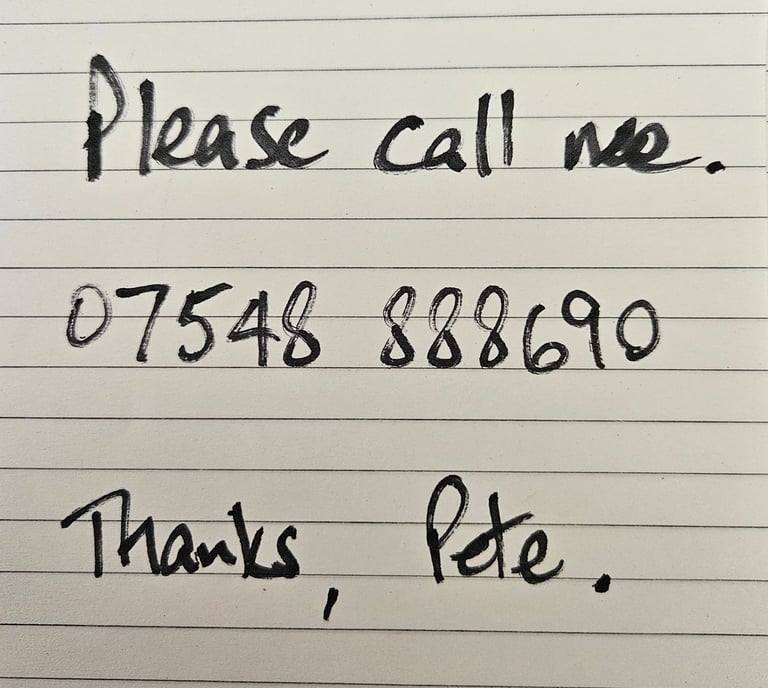 Please call me.
07548 888690
Thanks, Pete.